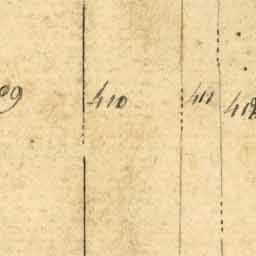 09 410 411 412